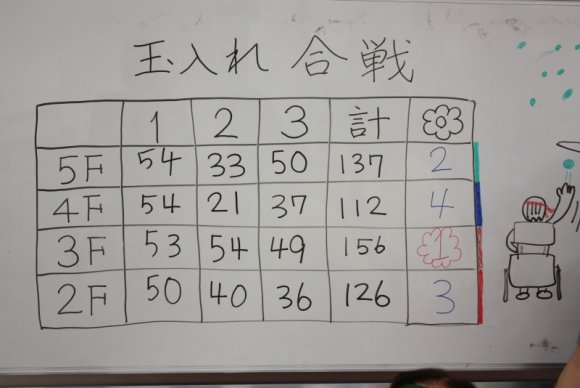 玉入れ 合戦
1 2 3 計
5F 54 33 50 137 2
4F 54 21 37 112 4
3F 53 54 49 156 1
2F 50 40 36 126 3